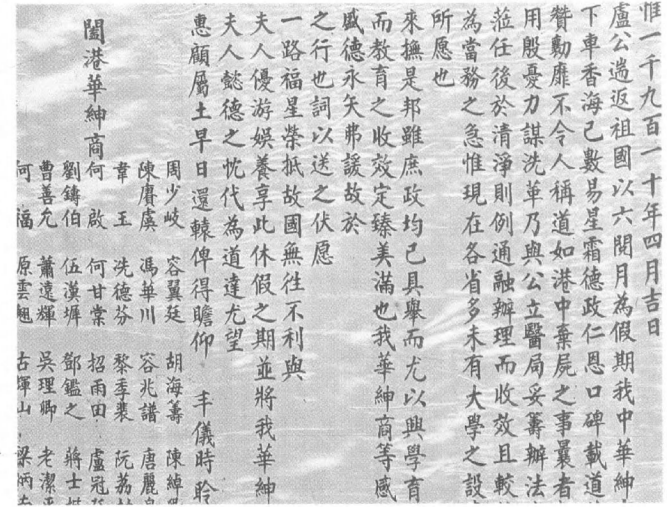 惟一千九百一十年四月吉日
盧公遄返祖國以六閱月為假期我中華紳
下車香海已數易星霜德政仁恩口碑載道
贊勷靡不令人稱道如港中棄屍之事曩者
用殷憂力謀洗革乃與公立醫局妥籌辦法
蒞任後於清淨則例通融辦理而收效且較
為當務之急惟現在各省多未有大學之設
所愿也
來撫是邦雖庶政均已具舉而尤以興學育
而教育之收效定臻美滿也我華紳商等感
盛德永矢弗諼故於
之行也詞以送之伏愿
一路福星榮抵故國無往不利與
夫人優游娛養享此休假之期並將我華紳
夫人懿德之忱代為道達尤望
惠顧屬土早日還轅俾得瞻仰 丰儀時聆
周少岐 容翼廷 胡海籌 陳綽
陳賡虞 馮華川 容兆譜 唐麗泉
韋玉 冼德芬 黎季裴 阮荔村
何啟 何甘棠 招雨田 盧冠廷
劉鑄伯 伍漢墀 鄧鑑之 蔣士楷
曹善允 蕭遠輝 吳理卿 老潔平
何福 原雲翹 古輝山 梁炳南
闔港華紳商